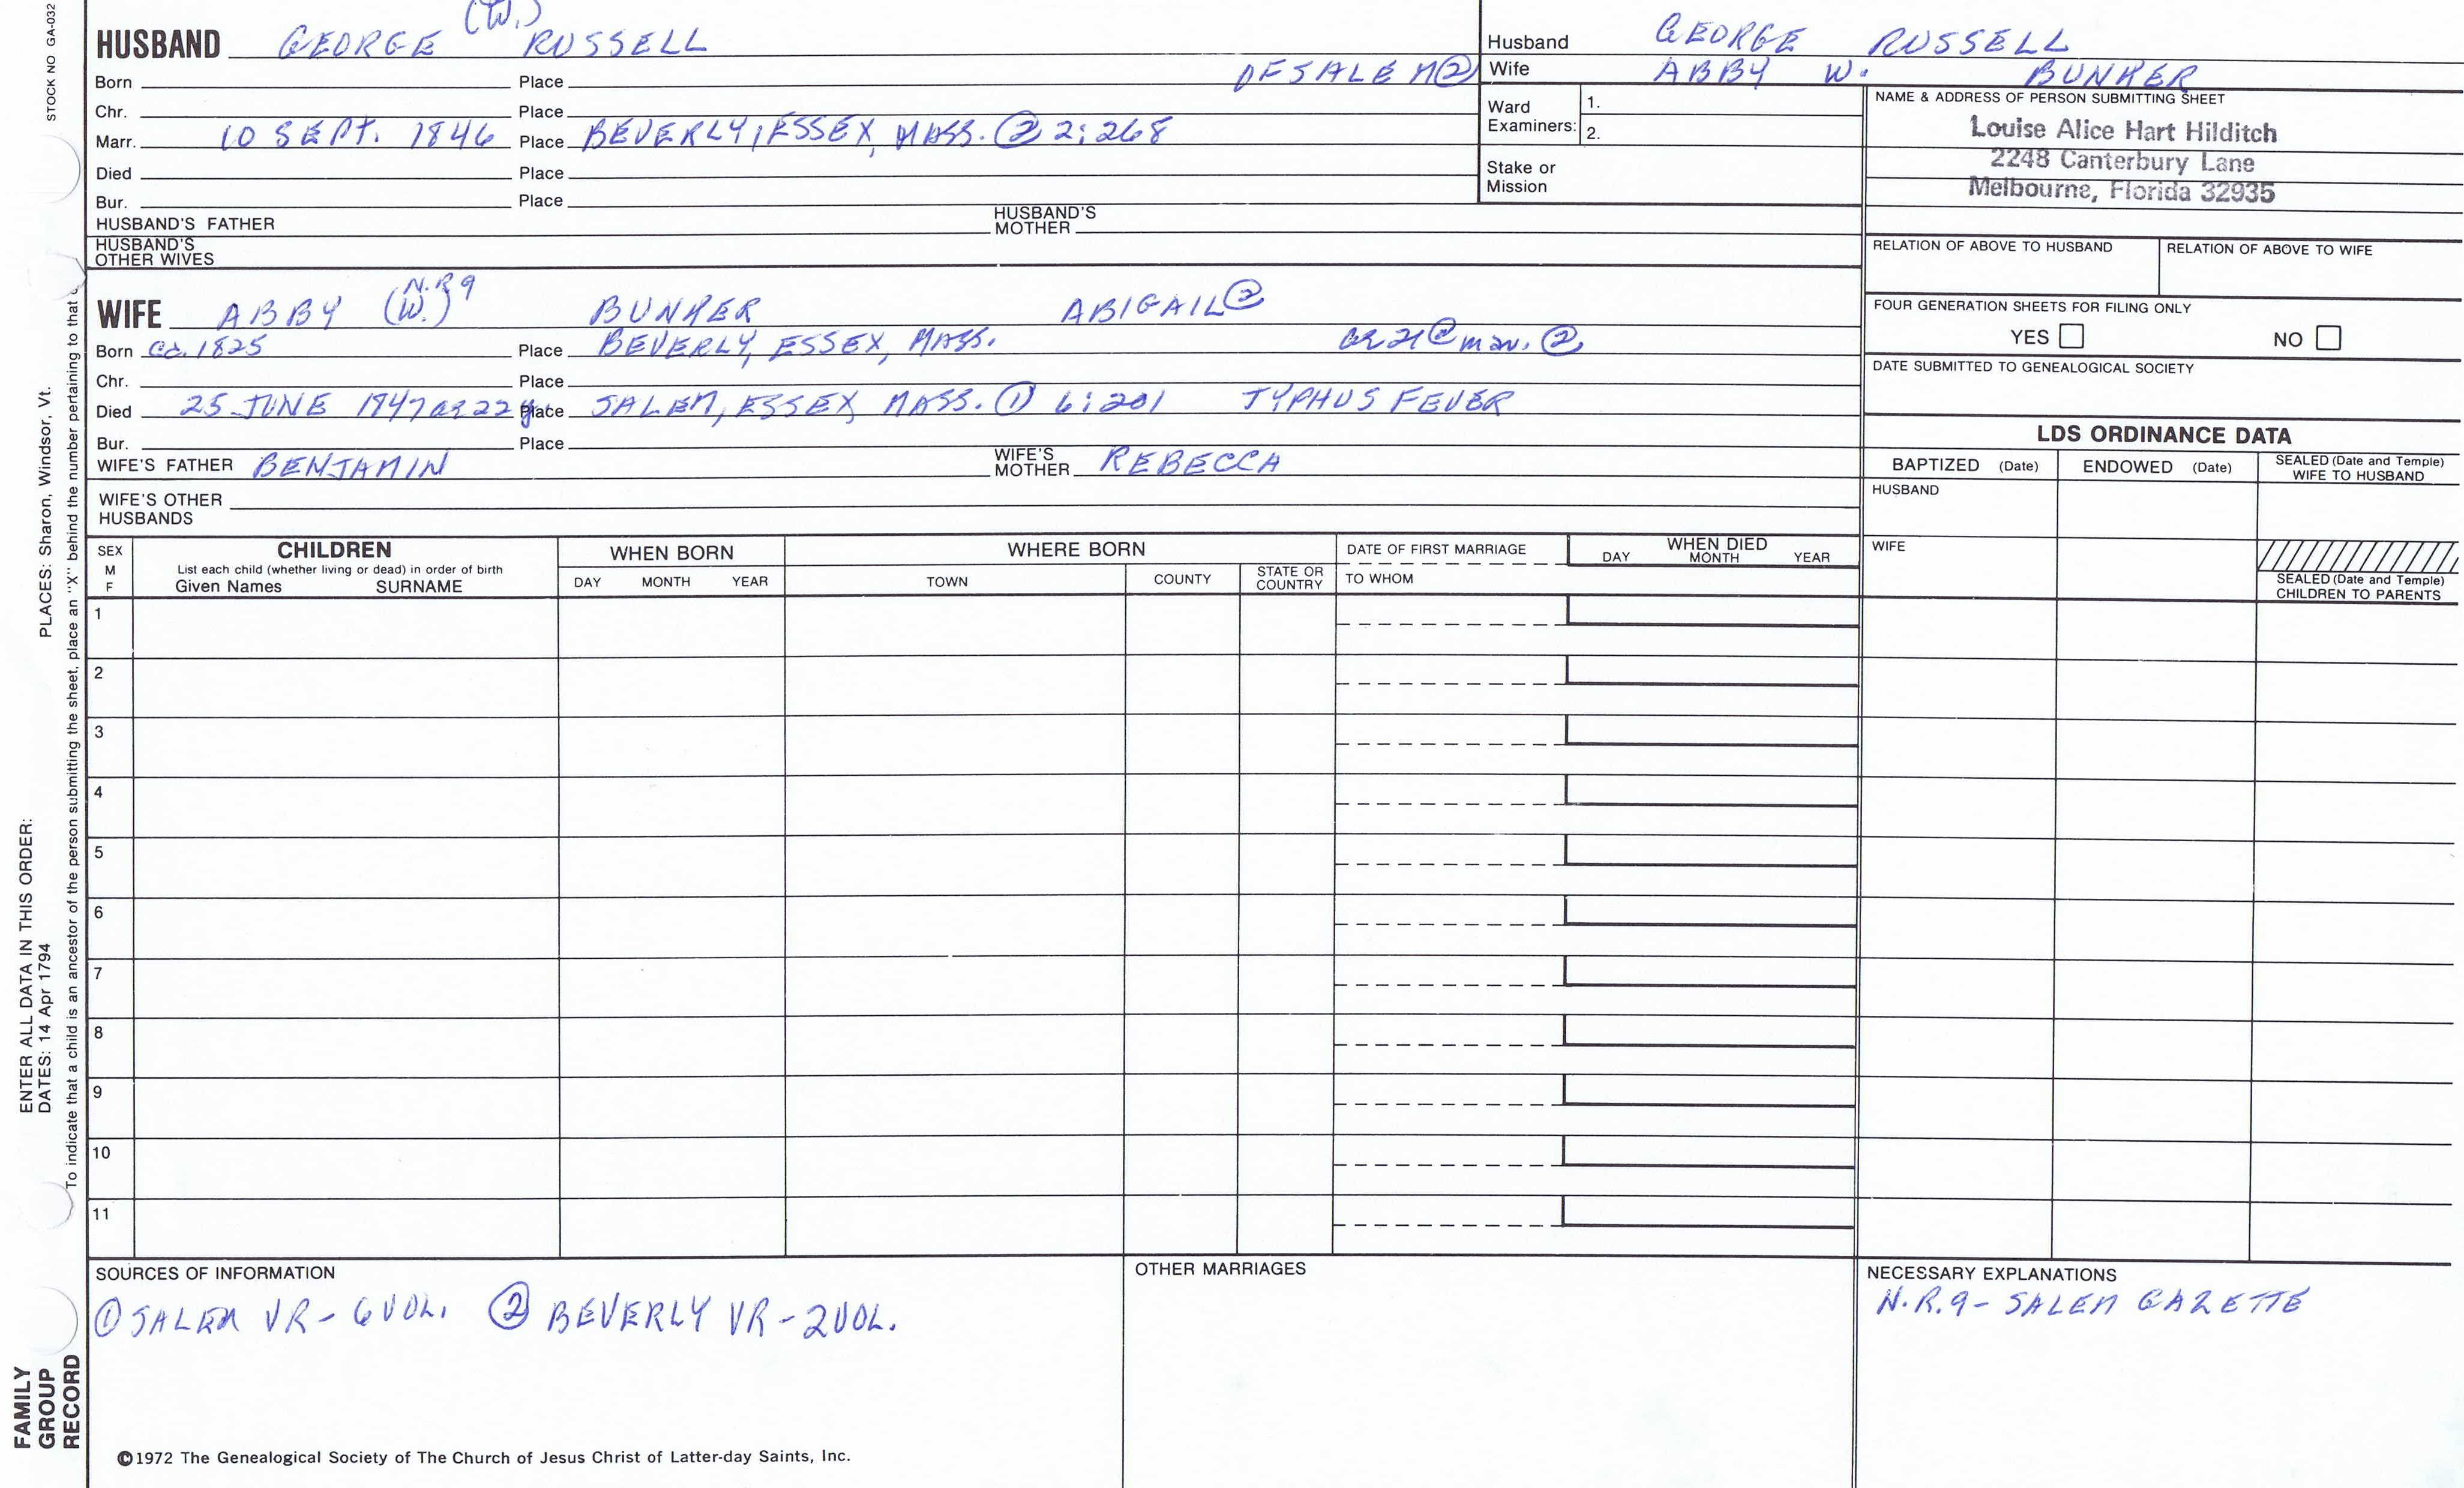 STOCK NO GA-032
(W.)
HUSBAND GEORGE RUSSELL
Husband GEORGE RUSSELL
Born Place OF SALEM ②
Wife ABBY W. BUNKER
Chr. Place
Ward Examiners: 1. 2.
NAME & ADDRESS OF PERSON SUBMITTING SHEET
Louise Alice Hart Hilditch
2248 Canterbury Lane
Melbourne, Florida 32935
Marr. 10 SEPT. 1846 Place BEVERLY, ESSEX, MASS. ② 2:268
Died Place
Stake or Mission
Bur. Place
HUSBAND'S FATHER HUSBAND'S MOTHER
HUSBAND'S OTHER WIVES
RELATION OF ABOVE TO HUSBAND RELATION OF ABOVE TO WIFE
N.R.9
WIFE ABBY (W.) BUNKER ABIGAIL ②
Born Ca. 1825 Place BEVERLY, ESSEX, MASS. ae 21 @ mar. ②
Chr. Place
Died 25 JUNE 1847 ae 22 y Place SALEM, ESSEX, MASS. ① 6:201 TYPHUS FEVER
Bur. Place
WIFE'S FATHER BENJAMIN WIFE'S MOTHER REBECCA
WIFE'S OTHER HUSBANDS
FOUR GENERATION SHEETS FOR FILING ONLY
YES NO
DATE SUBMITTED TO GENEALOGICAL SOCIETY
LDS ORDINANCE DATA
BAPTIZED (Date) ENDOWED (Date) SEALED (Date and Temple) WIFE TO HUSBAND
HUSBAND
WIFE
SEALED (Date and Temple) CHILDREN TO PARENTS
SEX M F
CHILDREN
List each child (whether living or dead) in order of birth
Given Names SURNAME
WHEN BORN
DAY MONTH YEAR
WHERE BORN
TOWN COUNTY STATE OR COUNTRY
DATE OF FIRST MARRIAGE
TO WHOM
WHEN DIED
DAY MONTH YEAR
1
2
3
4
5
6
7
8
9
10
11
SOURCES OF INFORMATION
① SALEM VR - 6 VOL. ② BEVERLY VR - 2 VOL.
OTHER MARRIAGES
NECESSARY EXPLANATIONS
N.R.9 - SALEM GAZETTE
©1972 The Genealogical Society of The Church of Jesus Christ of Latter-day Saints, Inc.
ENTER ALL DATA IN THIS ORDER:
DATES: 14 Apr 1794 PLACES: Sharon, Windsor, Vt.
To indicate that a child is an ancestor of the person submitting the sheet, place an "X" behind the number pertaining to that
FAMILY
GROUP
RECORD